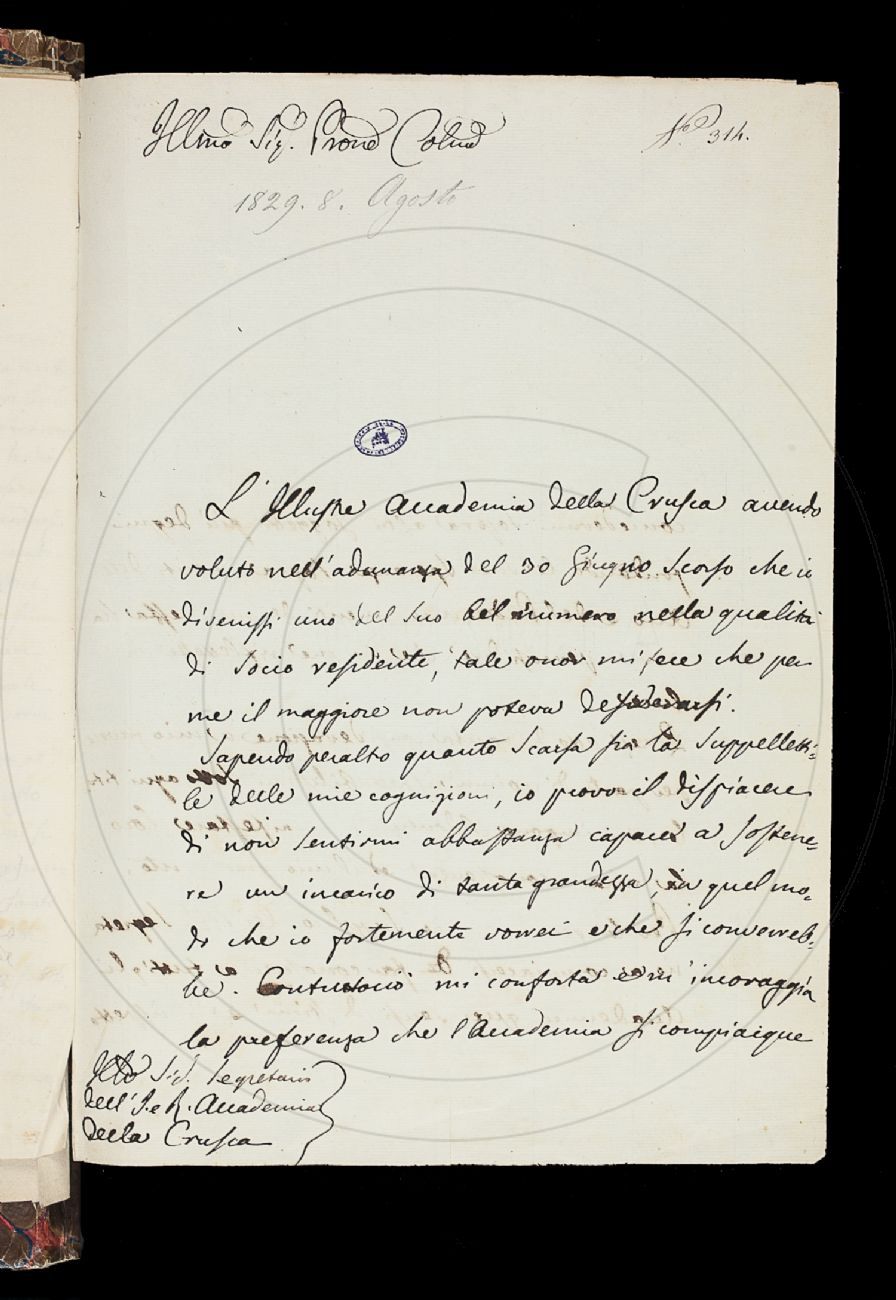 Illmo Sig. Prone Colmo
N.o 314.
1829. 8. Agosto
L'Illustre Accademia della Crusca avendo
voluto nell'adunanza del 30 Giugno scorso che io
divenissi uno del suo bel numero nella qualità
di socio residente, tale onor mi fece che per
me il maggiore non poteva desiderarsi.
Sapendo peraltro quanto scarsa sia la suppelletti=
le delle mie cognizioni, io provo il dispiacere
di non sentirmi abbastanza capace a sostene=
re un incarico di tanta grandezza, in quel mo=
do che io fortemente vorrei e che si converreb=
be. Contuttociò mi conforta e m'incoraggia
la preferenza che l'Accademia si compiacque
Sig. Segretario
dell'I. e R. Accademia
della Crusca